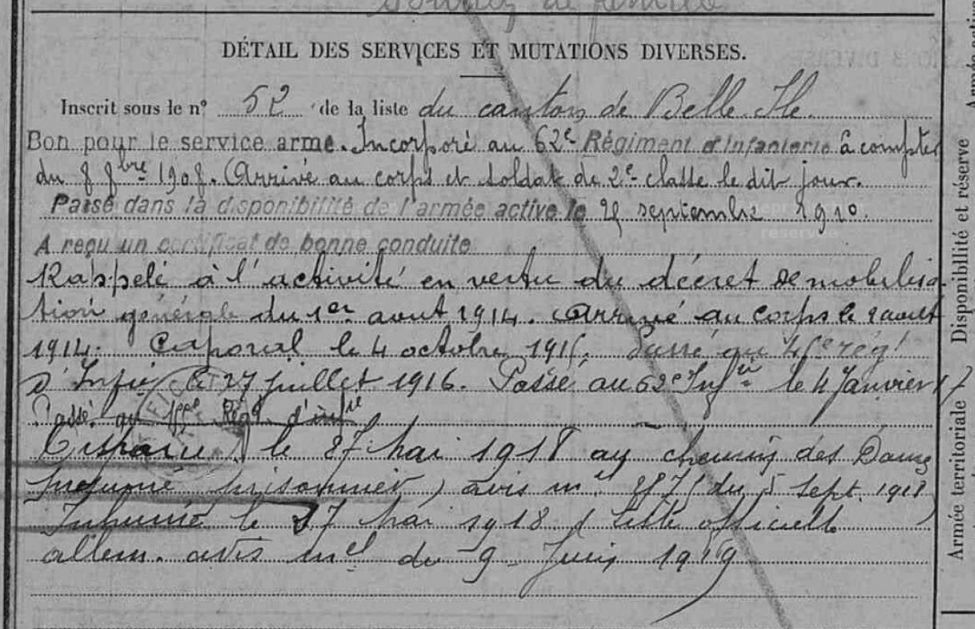 DÉTAIL DES SERVICES ET MUTATIONS DIVERSES.
Inscrit sous le n° 52 de la liste du canton de Belle Ile.
Bon pour le service armé. Incorporé au 62e Régiment d'Infanterie à compter
du 8 8bre 1908. Arrivé au corps et soldat de 2e classe le dit jour.
Passé dans la disponibilité de l'armée active le septembre 1910.
A reçu un certificat de bonne conduite
Rappelé à l'activité en vertu du décret de mobilisa-
tion générale du 1er aout 1914. Arrivé au corps le aout
1914. Caporal le 4 octobre 1915. Passé au régt
d'Infie le 27 juillet 1916. Passé au 62e Infie le 4 Janvier 17
Passé au Régt d'infie
Disparu le 27 Mai 1918 au chemin des Dames
présumé prisonnier) avis mel du 5 Sept. 1918
Inhumé le 27 Mai 1918 liste officielle
allem. avis mel du 9 Juin 1919
Disponibilité et réserve
Armée territoriale